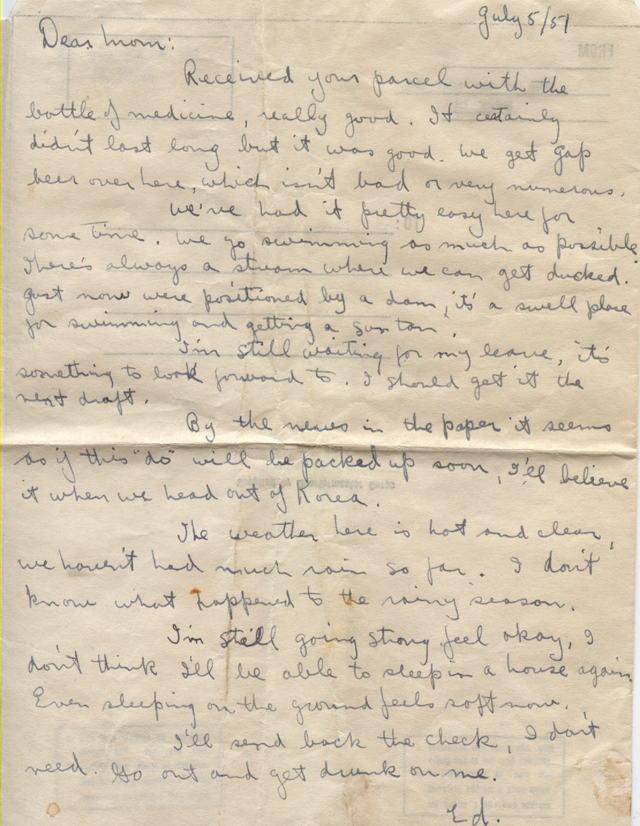 July 5/51
Dear Mom:
Received your parcel with the
bottle of medicine, really good. It certainly
didn't last long but it was good. We get Jap
beer over here, which isn't bad or very numerous.
We've had it pretty easy here for
some time. We go swimming as much as possible.
There's always a stream where we can get ducked.
Just now were positioned by a dam, it's a swell place
for swimming and getting a sun tan.
I'm still waiting for my leave, it's
something to look forward to. I should get it the
next draft.
By the news in the paper it seems
as if this "do" will be packed up soon, I'll believe
it when we head out of Korea.
The weather here is hot and clear,
we haven't had much rain so far. I don't
know what happened to the rainy season.
I'm still going strong feel okay, I
don't think I'll be able to sleep in a house again.
Even sleeping on the ground feels soft now.
I'll send back the check, I don't
need. Go out and get drunk on me.
Ed.
FROM